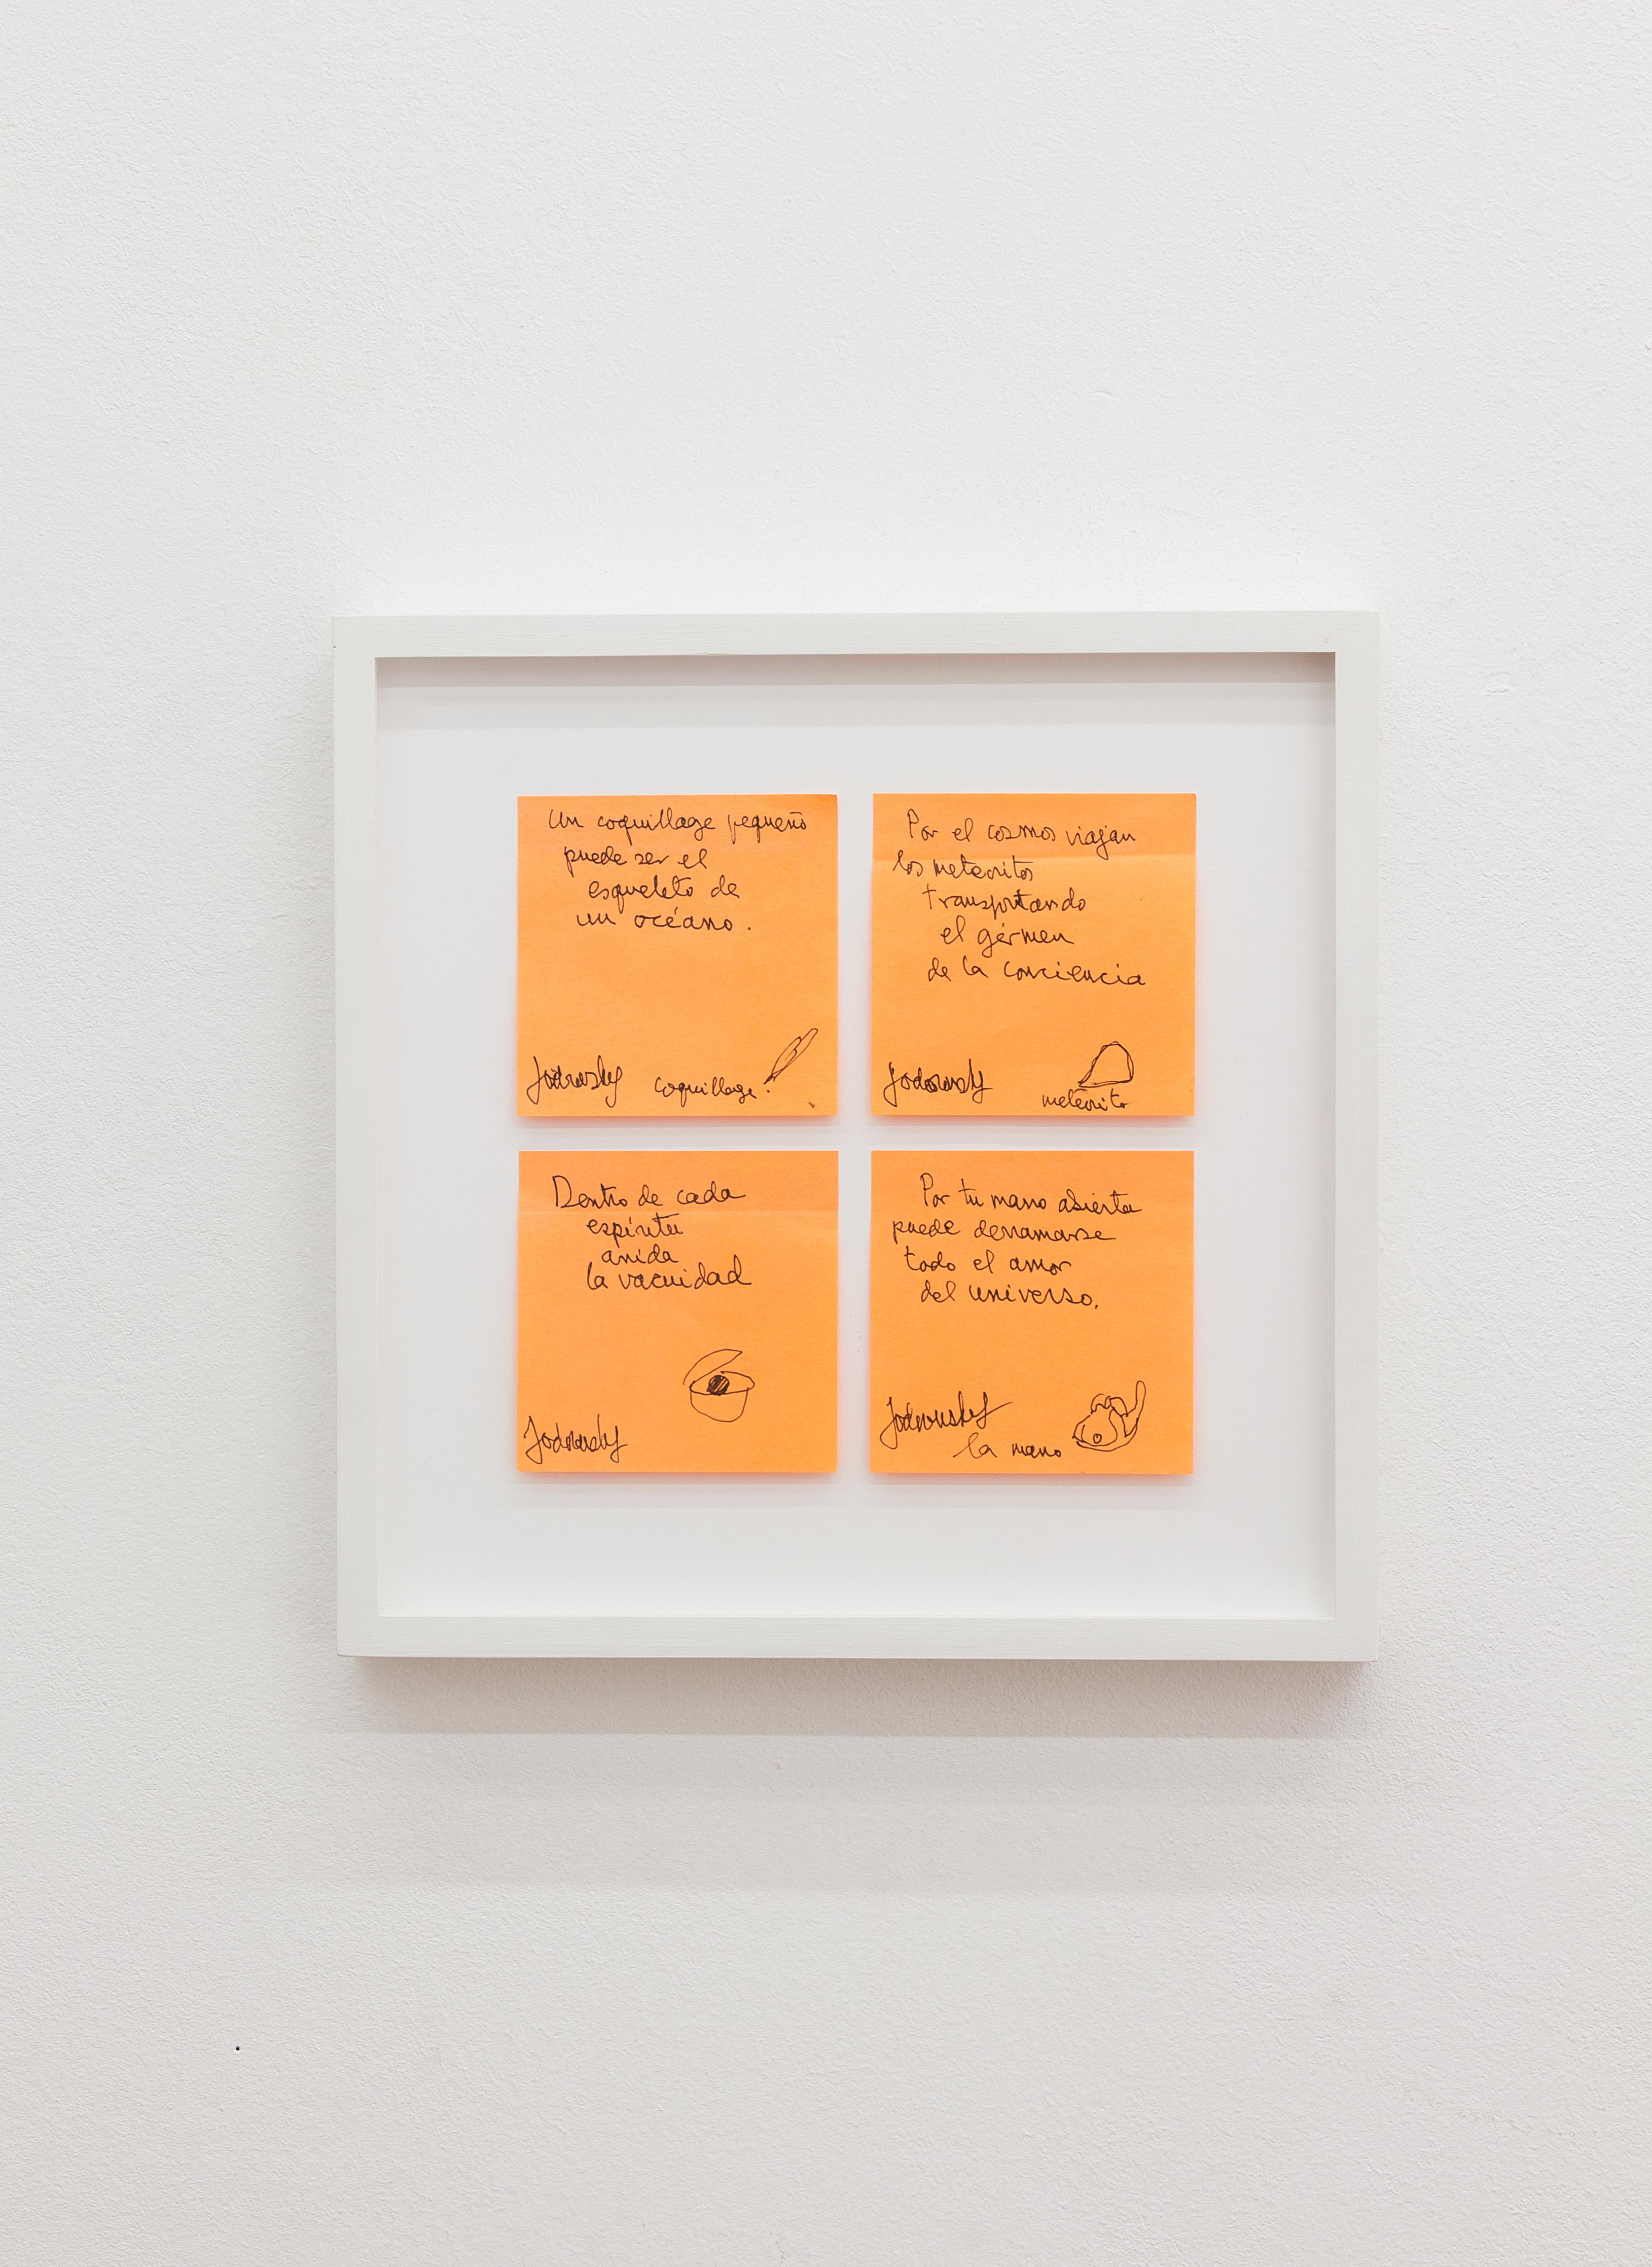 Un coquillage pequeño
puede ser el
esqueleto de
un océano.
Jodorowsky
coquillage:
Por el cosmos viajan
los meteoritos
transportando
el gérmen
de la conciencia
Jodorowsky
meteorito
Dentro de cada
espíritu
anida
la vacuidad
Jodorowsky
Por tu mano abierta
puede derramarse
todo el amor
del universo.
Jodorowsky
la mano